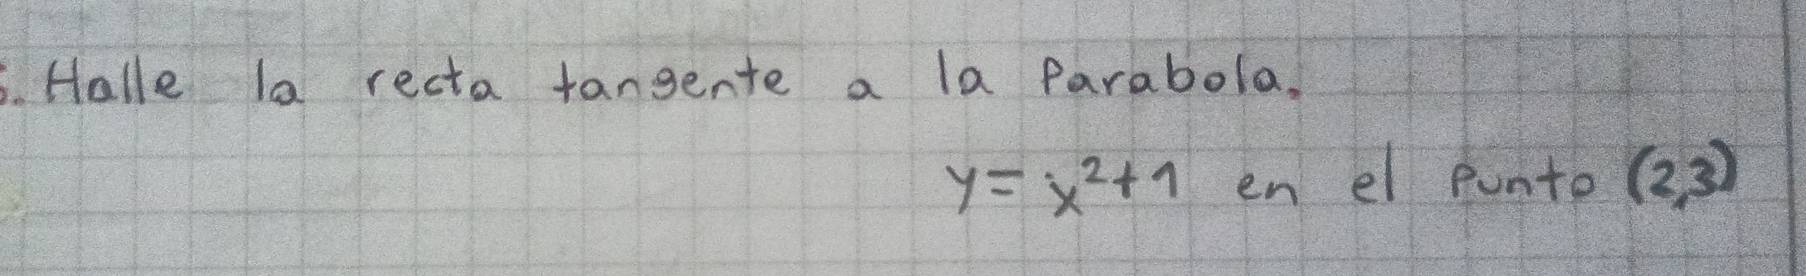 5. Halle la recta tangente a la Parabola.
y = x²+1 en el Punto (2,3)